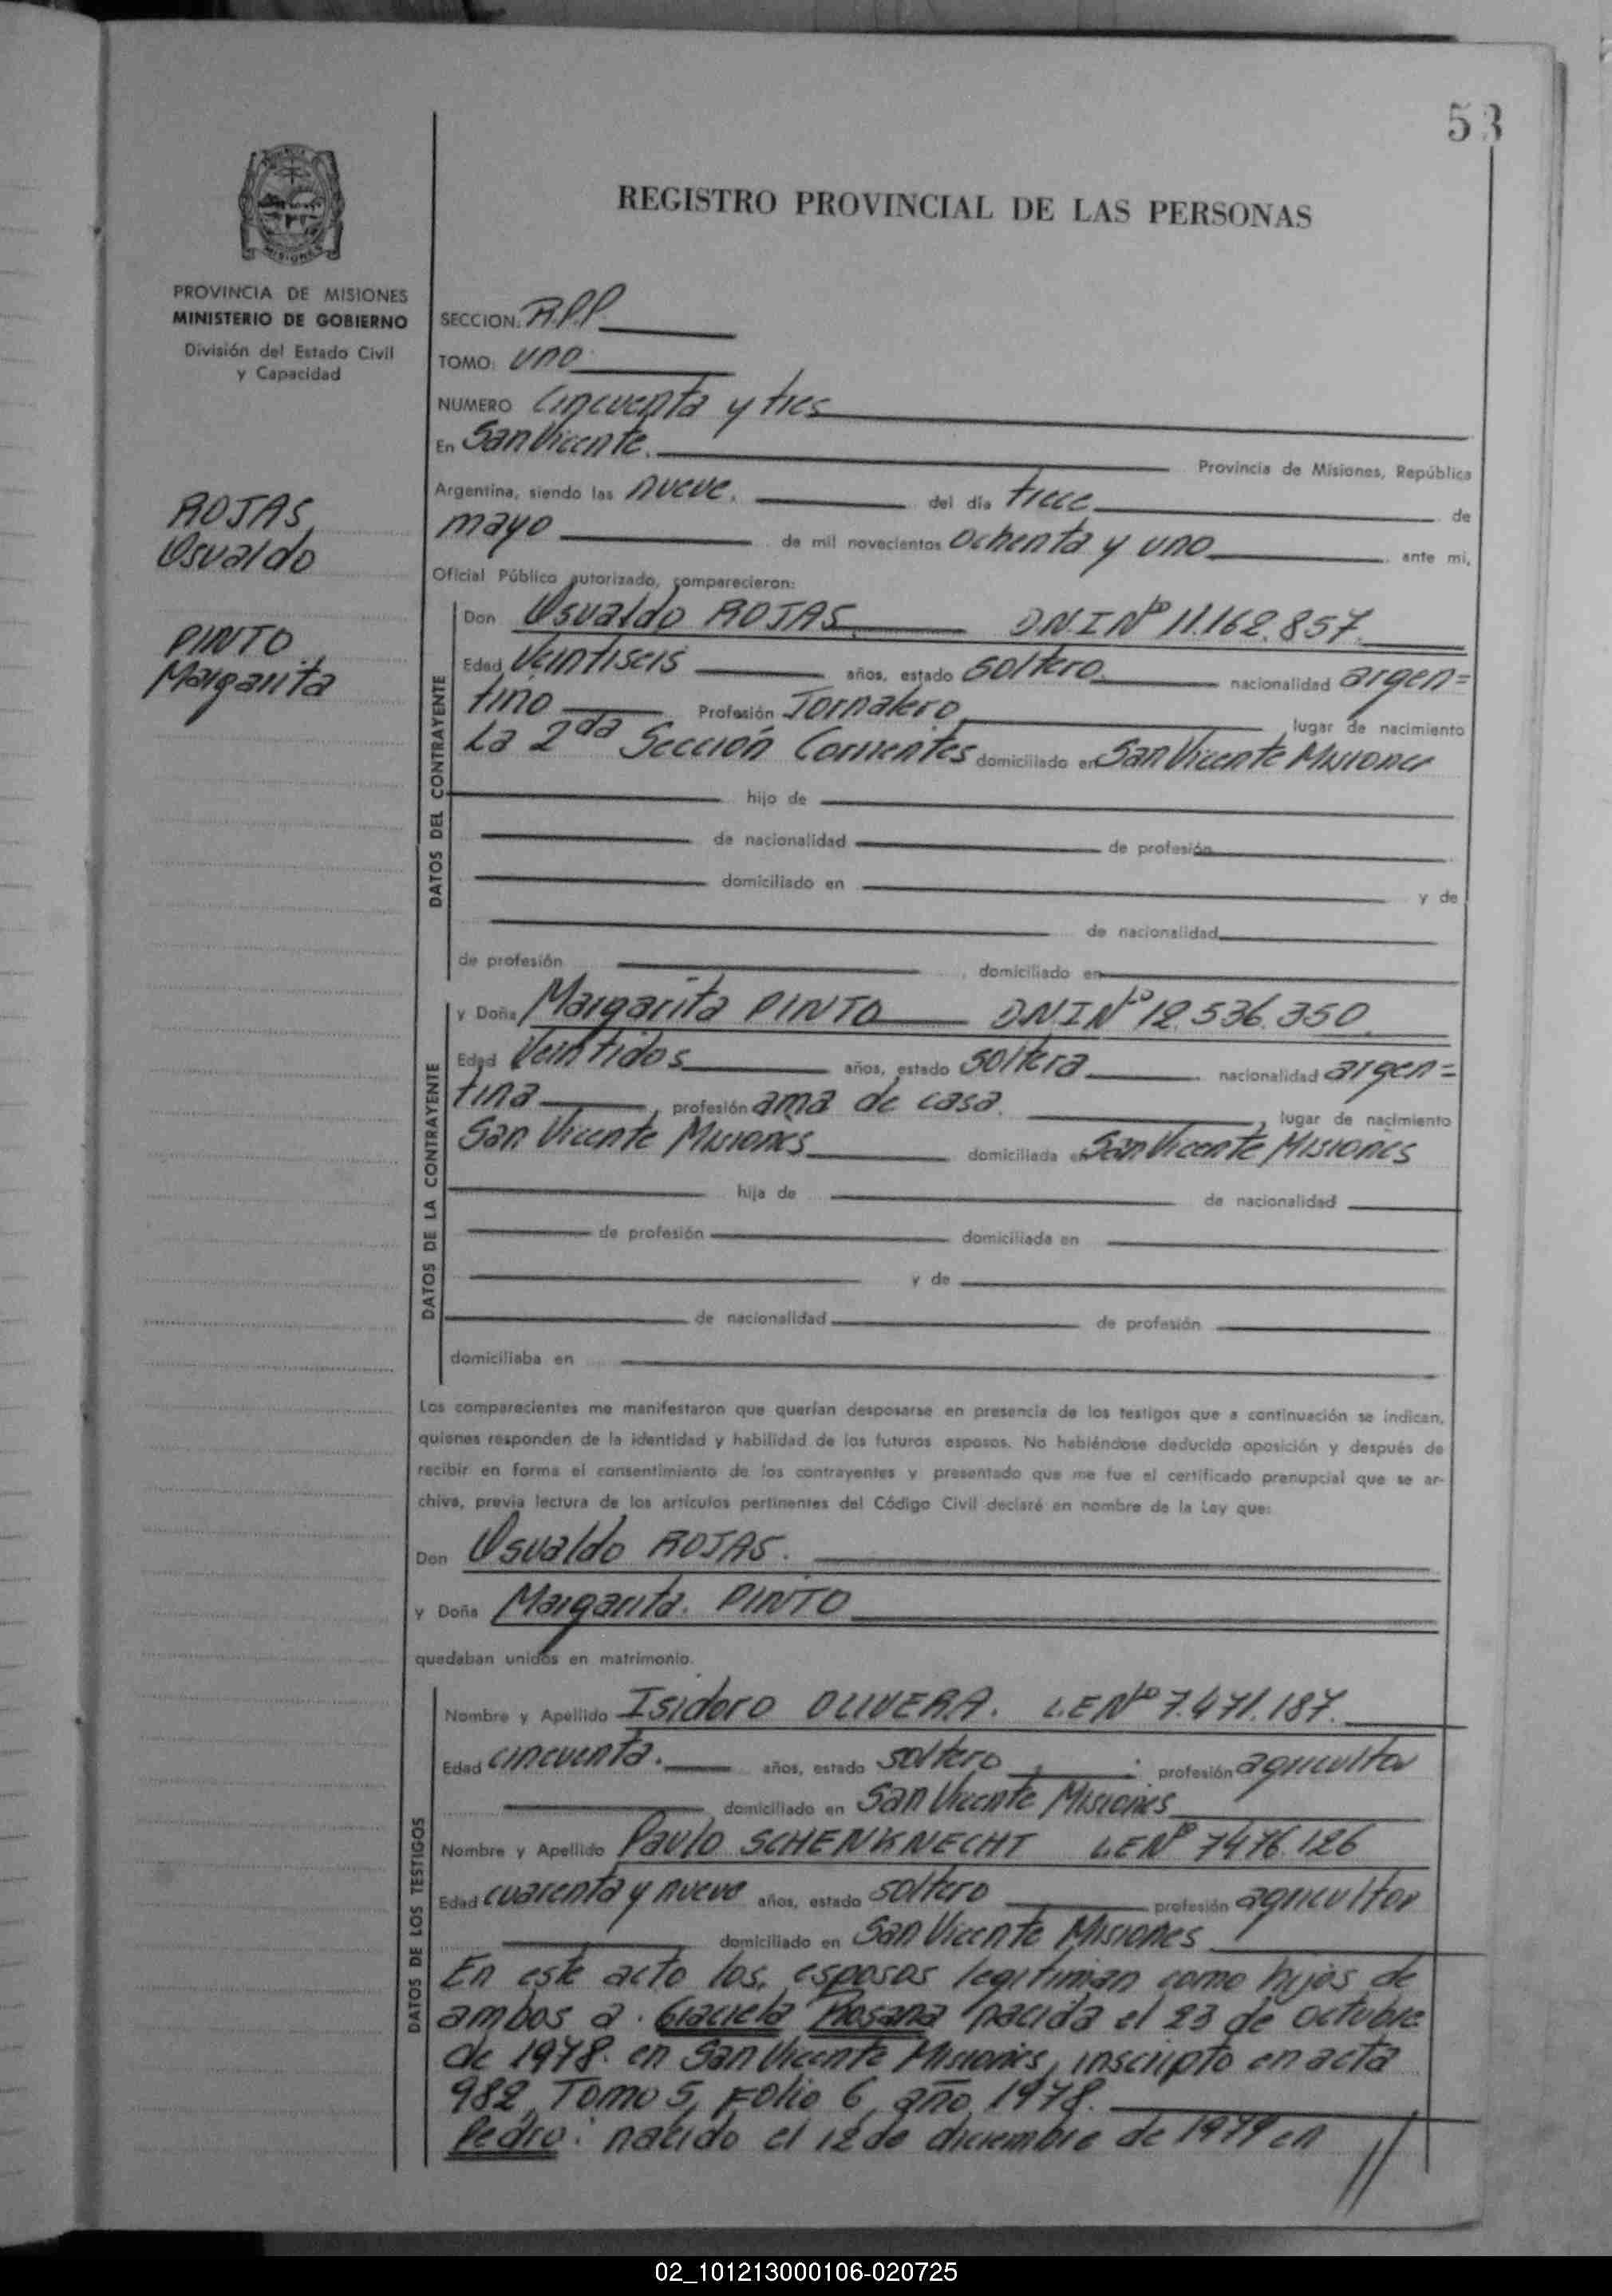 53
REGISTRO PROVINCIAL DE LAS PERSONAS
MISIONES
PROVINCIA DE MISIONES
MINISTERIO DE GOBIERNO
División del Estado Civil
y Capacidad
ROJAS,
Osvaldo
PINTO
Margarita
SECCION: R.P.P.
TOMO: uno
NUMERO cincuenta y tres
En San Vicente. Provincia de Misiones, República
Argentina, siendo las nueve. del día trece de
mayo de mil novecientos ochenta y uno ante mi,
Oficial Público autorizado, comparecieron:
DATOS DEL CONTRAYENTE
Don Osvaldo ROJAS DNI Nº 11.162.857.
Edad Veintiseis años, estado soltero nacionalidad argen=
tino Profesión Jornalero lugar de nacimiento
La 2da Sección Corrientes domiciliado en San Vicente Misiones
hijo de
de nacionalidad de profesión
domiciliado en y de
de nacionalidad
de profesión , domiciliado en
DATOS DE LA CONTRAYENTE
y Doña Margarita PINTO DNI Nº 12.536.350
Edad Veintidos años, estado soltera nacionalidad argen=
tina, profesión ama de casa. , lugar de nacimiento
San Vicente Misiones domiciliada en San Vicente Misiones
hija de de nacionalidad
de profesión domiciliada en
y de
de nacionalidad de profesión
domiciliaba en
Los comparecientes me manifestaron que querían desposarse en presencia de los testigos que a continuación se indican,
quienes responden de la identidad y habilidad de los futuros esposos. No habiéndose deducido oposición y después de
recibir en forma el consentimiento de los contrayentes y presentado que me fue el certificado prenupcial que se ar-
chiva, previa lectura de los artículos pertinentes del Código Civil declaré en nombre de la Ley que:
Don Osvaldo ROJAS.
y Doña Margarita. PINTO
quedaban unidos en matrimonio.
DATOS DE LOS TESTIGOS
Nombre y Apellido Isidoro OLIVERA. L.E Nº 7.471.187.
Edad cincuenta. años, estado soltero profesión agricultor
domiciliado en San Vicente Misiones
Nombre y Apellido Paulo SCHENKNECHT L.E Nº 7476.126
Edad cuarenta y nueve años, estado soltero profesión agricultor
domiciliado en San Vicente Misiones
En este acto los, esposos legitiman como hijos de
ambos a. Graciela Rosana nacida el 23 de octubre
de 1978. en San Vicente Misiones, inscripto en acta
982, Tomo 5, Folio 6, año 1978.
Pedro: nacido el 12 de diciembre de 1979 en //
02_101213000106-020725